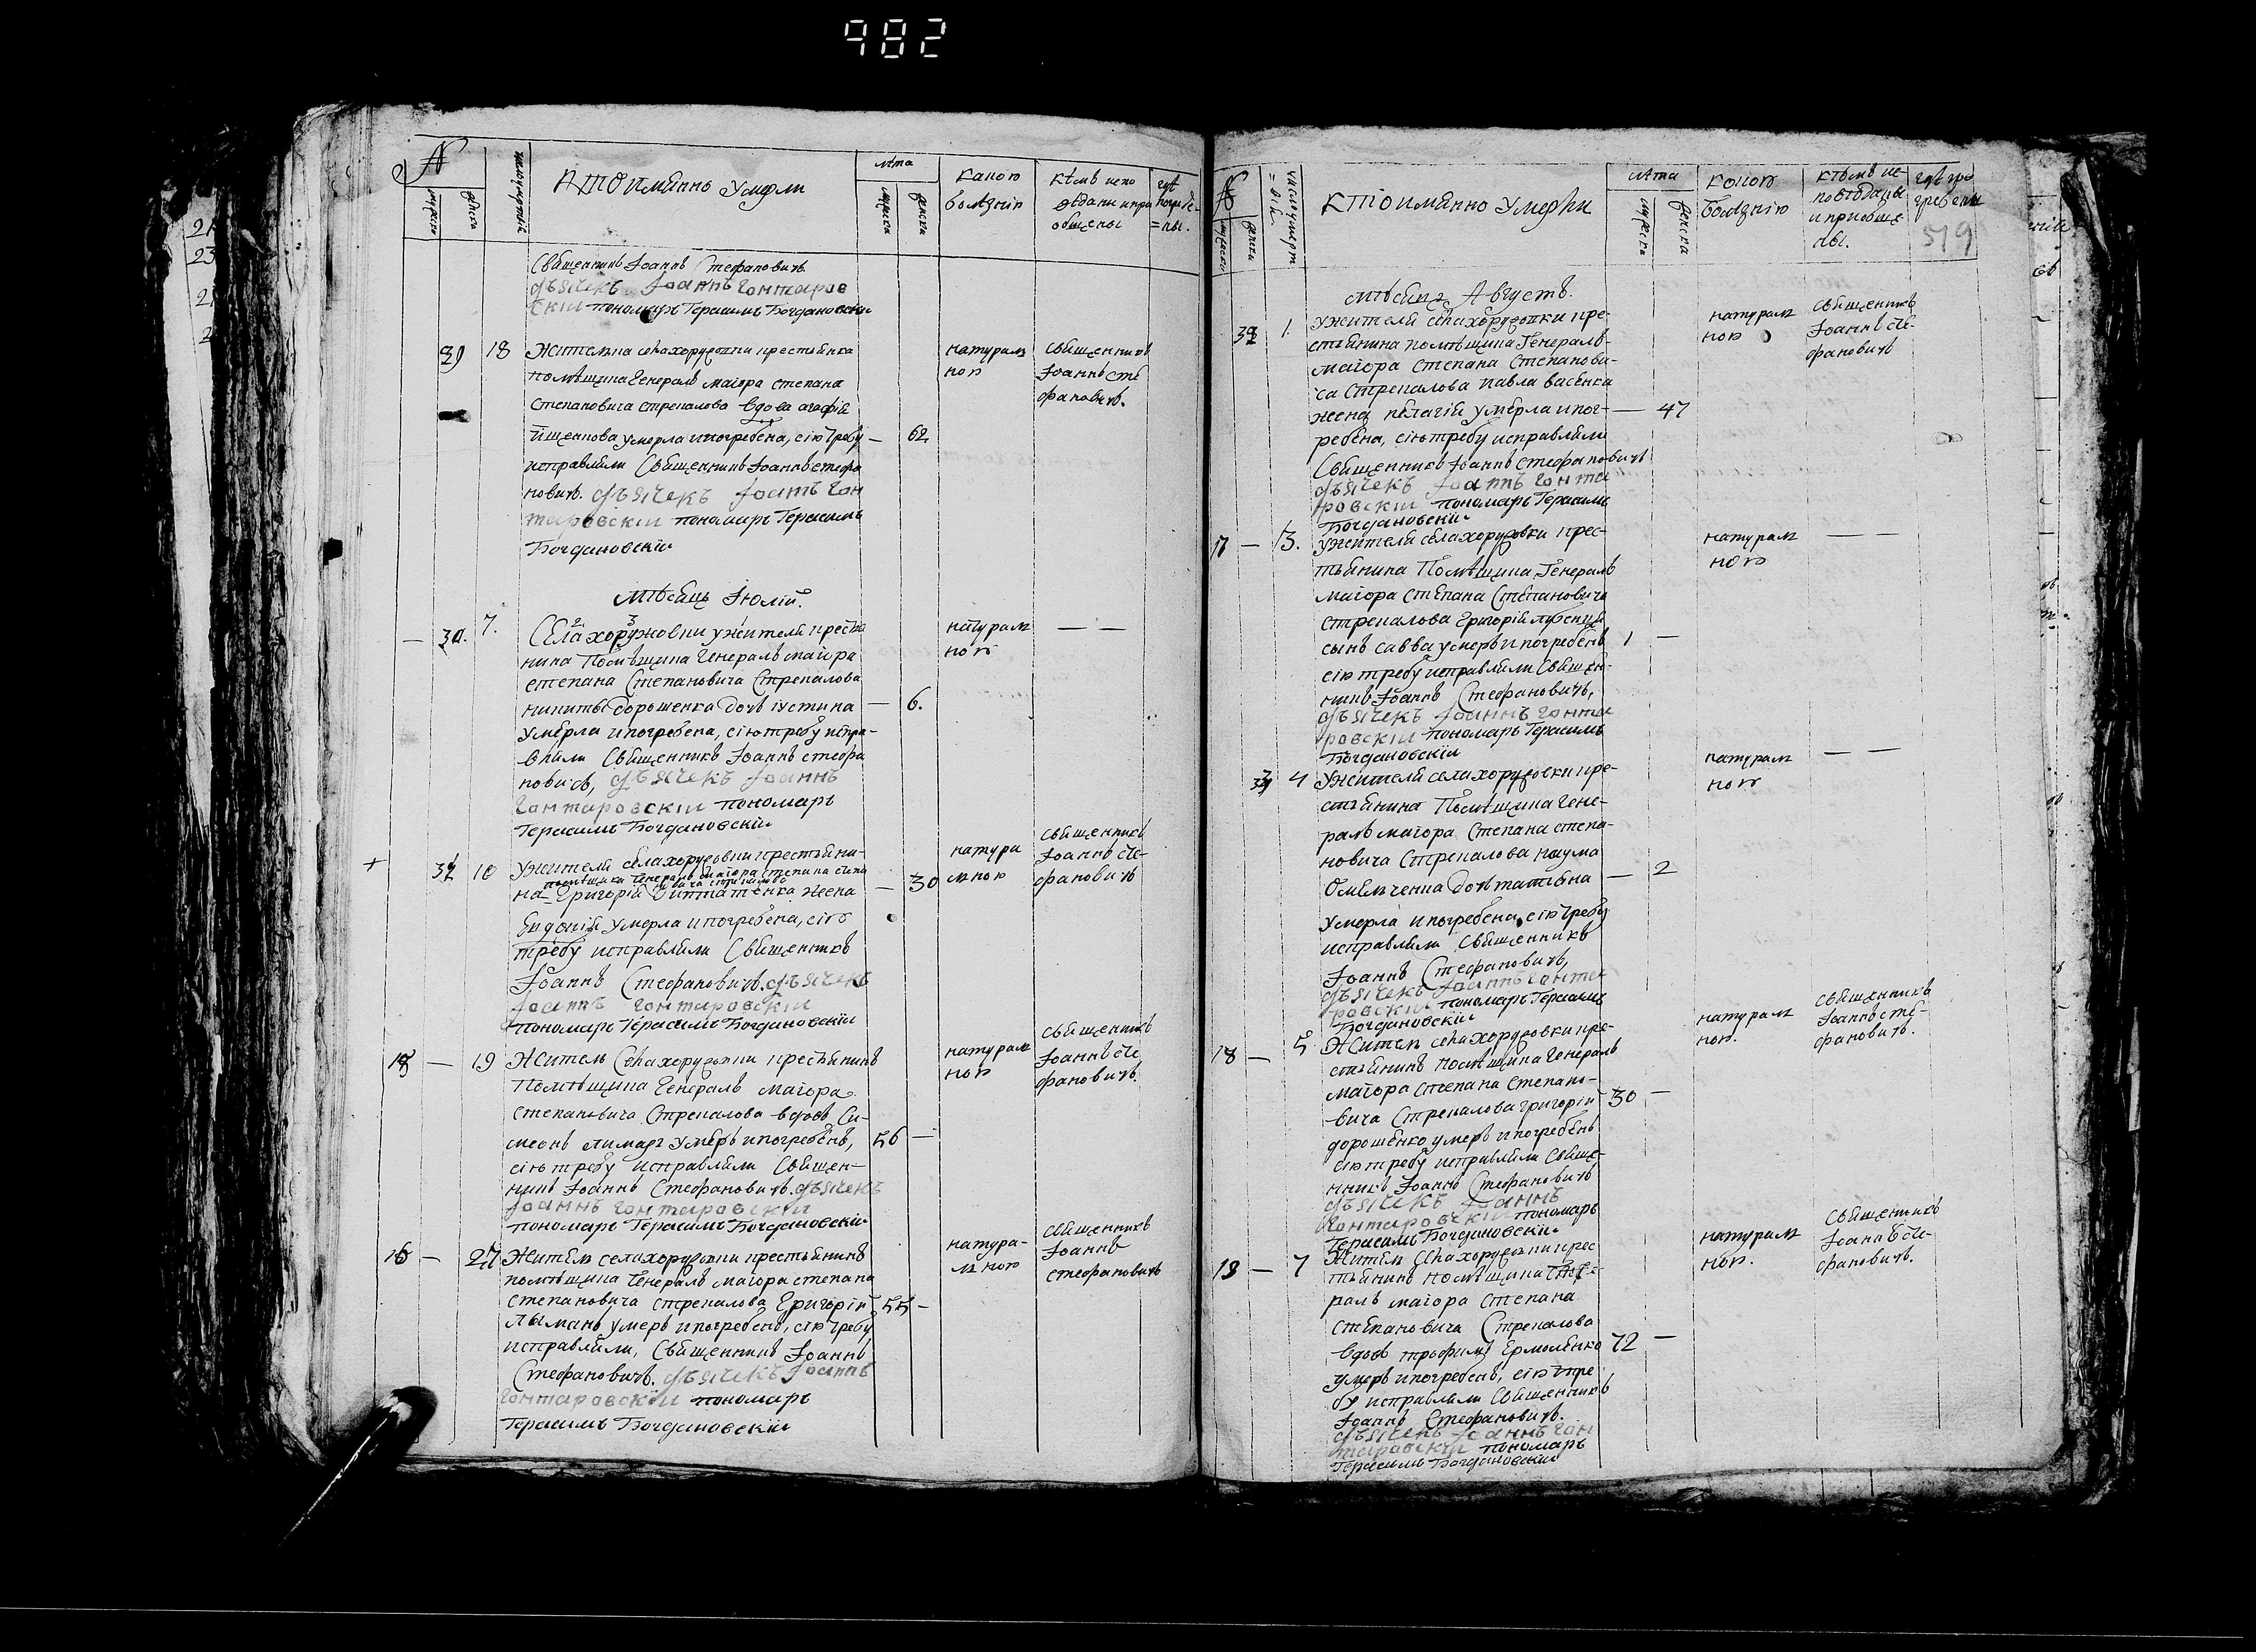 982
№
лѣта
кто имянно умерли
какою
болѣзнію
Священникъ Іоаннъ Стефановичъ
дьячекъ Іоаннъ Гонтаров
скіи пономаръ Герасимъ Богдановскіи
18 Жителка села хоружовки крестьянка
помѣщика Генералъ маіора степана
степановича стрекалова вдова агафія
умерла и погребена, сію требу — 62
исправляли Священникъ Іоаннъ стефа
новичъ. дьячекъ Іоаннъ Гон
таровскіи пономаръ Герасимъ
Богдановскіи
натурал
ною
священникъ
Іоаннъ сте
фановичъ.
Мѣсяцъ Іюлій.
— 30. 7. Села хоружовки у жителя крестя
нина Помѣщика Генералъ маіора
степана Степановича Стрекалова
никиты дорошенка дочь іустина — 6.
умерла и погребена, сію требу испра-
вляли Священникъ Іоаннъ стефа
новичъ, дьячекъ Іоаннъ
Гонтаровскіи пономаръ
Герасимъ Богдановскіи
натурал
ною
— —
+ 10 У жителя села хоружовки крестьяни-
помѣщика Генералъ маіора степана степа
на Григорія жена — 30
Евдокія умерла и погребена, сію
требу исправляли Священникъ
Іоаннъ Стефановичъ. дьячекъ
Іоаннъ Гонтаровскіи
пономаръ Герасимъ Богдановскіи
натура
лною
священникъ
Іоаннъ Сте-
фановичъ
— 19 Жителъ Села хоружовки крестьянинъ
Помѣщика Генералъ маіора
степановича Стрекалова вдовъ Си-
меонъ лимаръ умеръ и погребенъ, 56 —
сію требу исправляли Священ-
никъ Іоаннъ Стефановичъ. дьячекъ
Іоаннъ Гонтаровскіи
пономаръ Герасимъ Богдановскіи
натурал
ною
священникъ
Іоаннъ Сте
фановичъ.
16 — 27 Жителъ села хоружовки крестьянинъ
помѣщика Генералъ маіора степана
степановича стрекалова Григорій 55 —
лыманъ умеръ и погребенъ, сію требу
исправляли, Священникъ Іоаннъ
Стефановичъ. дьячекъ Іоаннъ
Гонтаровскіи пономаръ
Герасимъ Богдановскіи
натура-
лною
священникъ
Іоаннъ
стефановичъ
№
лѣта
кто имянно умерли
какою
болѣзнію
519
мѣсяцъ Августъ.
1. У жителя села хоружовки кре-
стьянина помѣщика Генералъ-
маіора степана Степанови-
ча Стрекалова павла васенка
жена пелагія умерла и пог- — 47
ребена, сію требу исправляли
Священникъ Іоаннъ Стефановичъ
дьячекъ Іоаннъ Гонта
ровскіи пономаръ Герасимъ
Богдановскіи
натурал
ною
священникъ
Іоаннъ Сте-
фановичъ
17 — 3. У жителя села хоружовки крес-
тьянина Помѣщика Генералъ
маіора Степана Степановича
стрекалова Григорія
сынъ савва умеръ и погребенъ 1 —
сію требу исправляли Священ-
никъ Іоаннъ Стефановичъ,
дьячекъ Іоаннъ Гонта
ровскіи пономаръ Герасимъ
Богдановскіи
натурал
ною
— —
4 У жителя села хоружовки кре-
стьянина Помѣщика Гене-
ралъ маіора Степана степа-
новича Стрекалова наума
Омелченка дочь татіяна — 2
умерла и погребена, сію требу
исправляли Священникъ
Іоаннъ Стефановичъ,
дьячекъ Іоаннъ Гонта
ровскіи пономаръ Герасимъ
Богдановскіи
натурал
ною
— —
18 — 5 Жителъ села хоружовки кре-
стьянинъ помѣщика Генералъ
маіора Степана Степано-
вича Стрекалова григорій 30 —
дорошенко умеръ и погребенъ
сію требу исправляли Свяще-
нникъ Іоаннъ Стефановичъ
дьячекъ Іоаннъ
Гонтаровскіи пономаръ
Герасимъ Богдановскіи
натурал
ною.
священникъ
Іоаннъ сте-
фановичъ.
19 — 7 Жителъ села хоружовки крес
тьянинъ помѣщика Гене
ралъ маіора Степана
степановича Стрекалова
вдовъ трофимъ Ермоленко 72 —
умеръ и погребенъ, сію тре
бу исправляли Священникъ
Іоаннъ Стефановичъ.
дьячекъ Іоаннъ Гон
таровскіи пономаръ
Герасимъ Богдановскіи
натурал
ною.
Священникъ
Іоаннъ Сте-
фановичъ.